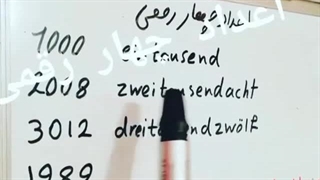 اعداد چهار رقمی
اعداد چهار رقمی
1000 eintausend
2008 zweitausendacht
3012 dreitausendzwölf
1989